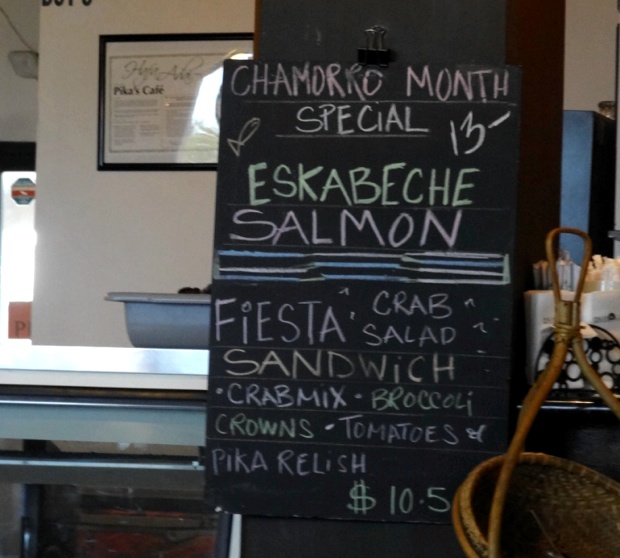 Hafa Adai
Pika's Café
CHAMORRO MONTH
SPECIAL 13-
ESKABECHE
SALMON
FiESTA CRAB
SALAD
SANDWiCH
• CRABMIX • BROCCOLi
CROWNS • TOMATOES &
PiKA RELiSH
$ 10.5